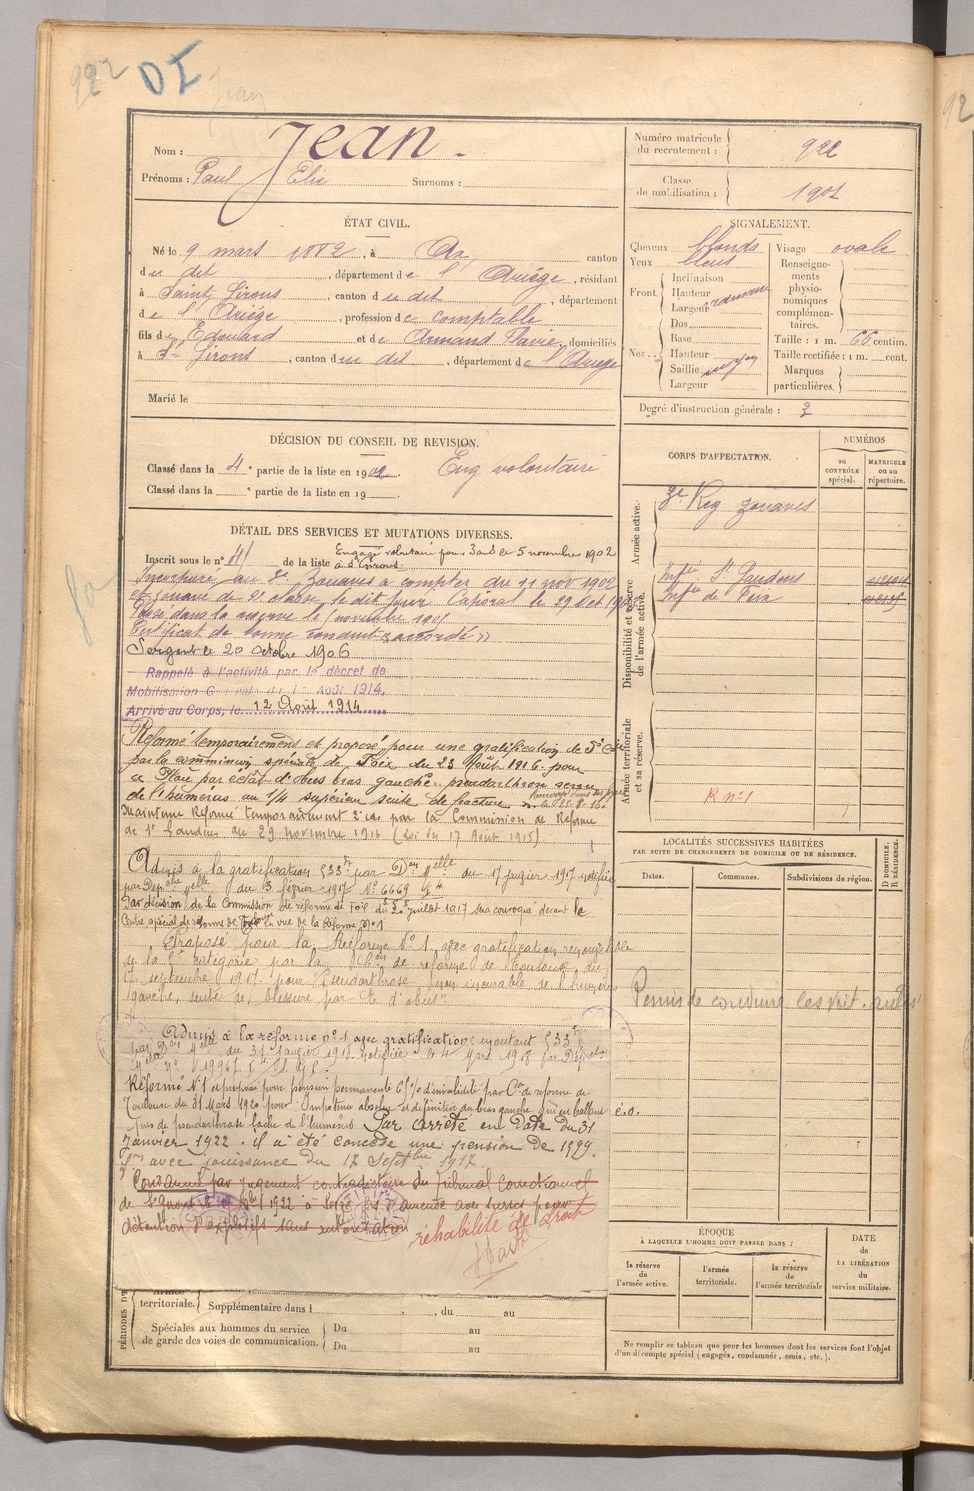 922 DI
Nom : Jean.
Prénoms : Paul Elie Surnoms :
Numéro matricule du recrutement : 922
Classe de mobilisation : 1901
ÉTAT CIVIL.
Né le 9 mars 1882, à Ax, canton
du dit, département de l'Ariège, résidant
à Saint Girons, canton du dit, département
de l'Ariège, profession de comptable
fils de Edouard et de Armand Marie, domiciliés
à St Girons, canton du dit, département de l'Ariège
Marié le
SIGNALEMENT.
Cheveux blonds
Yeux bleus
Front. Inclinaison
Hauteur
Largeur
Nez. Dos
Base
Hauteur
Saillie moyen
Largeur
Visage ovale
Renseignements physionomiques complémentaires.
Taille : 1 m. 66 centim.
Taille rectifiée : 1 m. cent.
Marques particulières.
Degré d'instruction générale : 3
DÉCISION DU CONSEIL DE REVISION.
Classé dans la 4e partie de la liste en 1902. Eng volontaire
Classé dans la e partie de la liste en 19
CORPS D'AFFECTATION.
NUMÉROS
au CONTRÔLE spécial.
MATRICULE ou au répertoire.
Armée active.
2e Reg Zouaves
Disponibilité et réserve de l'armée active.
Infie St Gaudens
Infie de Foix
Armée territoriale et sa réserve.
R n°1
DÉTAIL DES SERVICES ET MUTATIONS DIVERSES.
Inscrit sous le n° de la liste Engagé volontaire pour 3 ans le 5 novembre 1902
à St Girons.
Incorporé au 2e Zouaves à compter du 11 nov 1902
et zouave de 2e classe, le dit jour Caporal le 29 Set
Passé dans la réserve le novembre 1905
Certificat de bonne conduite accordé
Sergent le 20 octobre 1906
Rappelé à l'activité par le décret de
Mobilisation G du 1er Août 1914.
Arrivé au Corps, le 12 Août 1914
Réformé temporairement et proposé pour une gratification de
par la commission spéciale de Foix du 23 Août 1916 pour
Plaie par éclat d'obus bras gauche pseudarthrose
de l'huméras au 1/4 supérieur suite de fracture
Maintenu Réformé temporairement 2e cas par la Commission de Réforme
de St Gaudens du 29 novembre 1916 (Loi du 17 Août 1915)
Admis à la gratification 533 f par Don Melle du 17 janvier 1917 notifiée
par Dépêche Melle du 13 février 1917 N° 6669
Par décision de la Commission de réforme de Foix du juillet 1917 sera convoqué devant la
Centre spécial de réforme de en vue de la Réforme N°1
Proposé pour la Réforme N° 1 avec gratification renouvelable
de la catégorie par la Con de réforme de Toulouse du
septembre 1917 pour Pseudarthrose, non incurable de l'huméros
gauche, suite de blessure par E. d'obus
Admis à la réforme n° 1 avec gratification montant 533 f
par Don Melle du 31 janvier 1918 notifiée le 4 Mars 1918 par Dépêche
Melle N° 19967
Réformé N° 1 et proposé pour pension permanente 65% d'invalidité par Con de réforme de
Toulouse du 31 Mars 1920 pour : Impotence absolue et définitive du bras gauche qui est ballant
puis de pseudarthrose lache de l'huméros Par Arrêté en date du 31
Janvier 1922 il a été concédé une pension de 1599
frs avec jouissance du 17 Septbre 1917
Condamné par jugement contradictoire du Tribunal Correctionnel
de St Girons le 1922 à Seize frs d'amende avec sursis pour
détention d'explosifs sans autorisation
réhabilité de droit
LOCALITÉS SUCCESSIVES HABITÉES
PAR SUITE DE CHANGEMENTS DE DOMICILE OU DE RÉSIDENCE.
Dates. Communes. Subdivisions de région.
D DOMICILE.
R RÉSIDENCE.
Permis de conduire les
ÉPOQUE
À LAQUELLE L'HOMME DOIT PASSER DANS :
la réserve de l'armée active.
l'armée territoriale.
la réserve de l'armée territoriale
DATE de LA LIBÉRATION du service militaire.
Ne remplir ce tableau que pour les hommes dont les services font l'objet
d'un décompte spécial (engagés, condamnés, omis, etc.).
PÉRIODES D
Armée territoriale. Supplémentaire dans l , du au
Spéciales aux hommes du service
de garde des voies de communication.
Du au
Du au